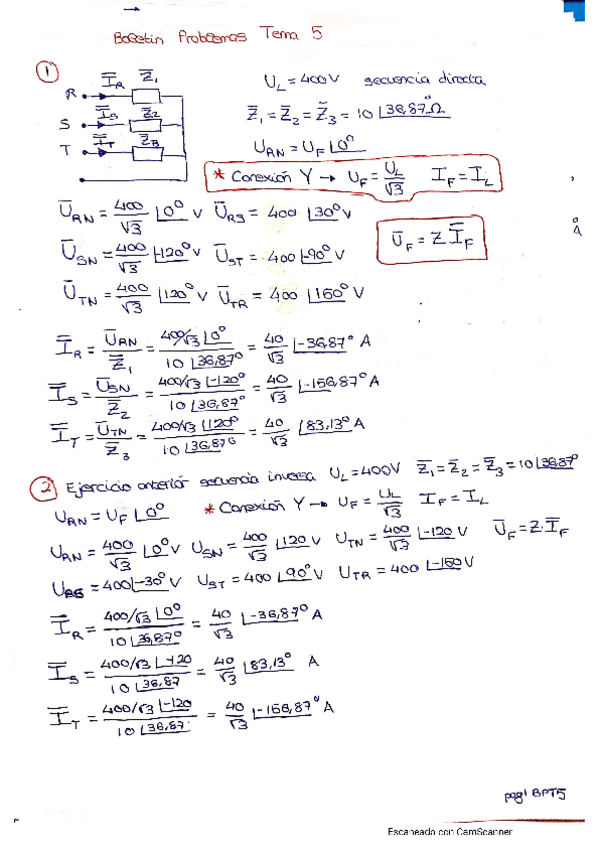 Boletín Problemas Tema 5
1
R I̅R Z̅1
S I̅S Z̅2
T I̅T Z̅3
UL = 400V secuencia directa
Z̅1 = Z̅2 = Z̅3 = 10 ∠36,87º Ω
U̅RN = UF ∠0º
* Conexión Y → UF = UL/√3 IF = IL
U̅RN = 400/√3 ∠0º V U̅RS = 400 ∠30º V
U̅SN = 400/√3 ∠-120º V U̅ST = 400 ∠-90º V
U̅TN = 400/√3 ∠120º V U̅TR = 400 ∠150º V
U̅F = Z I̅F
I̅R = U̅RN/Z̅1 = 400/√3 ∠0º / 10 ∠36,87º = 40/√3 ∠-36,87º A
I̅S = U̅SN/Z̅2 = 400/√3 ∠-120º / 10 ∠36,87º = 40/√3 ∠-156,87º A
I̅T = U̅TN/Z̅3 = 400/√3 ∠120º / 10 ∠36,87º = 40/√3 ∠83,13º A
2 Ejercicio anterior secuencia inversa UL = 400V Z̅1 = Z̅2 = Z̅3 = 10 ∠36,87º
U̅RN = UF ∠0º * Conexión Y → UF = UL/√3 IF = IL
U̅RN = 400/√3 ∠0º V USN = 400/√3 ∠120 V UTN = 400/√3 ∠-120 V U̅F = Z · I̅F
URS = 400 ∠-30º V UST = 400 ∠90º V UTR = 400 ∠-150 V
I̅R = 400/√3 ∠0º / 10 ∠36,87º = 40/√3 ∠-36,87º A
I̅S = 400/√3 ∠120 / 10 ∠36,87 = 40/√3 ∠83,13º A
I̅T = 400/√3 ∠-120 / 10 ∠36,87 = 40/√3 ∠-156,87º A
pag 1 BPT5
Escaneado con CamScanner